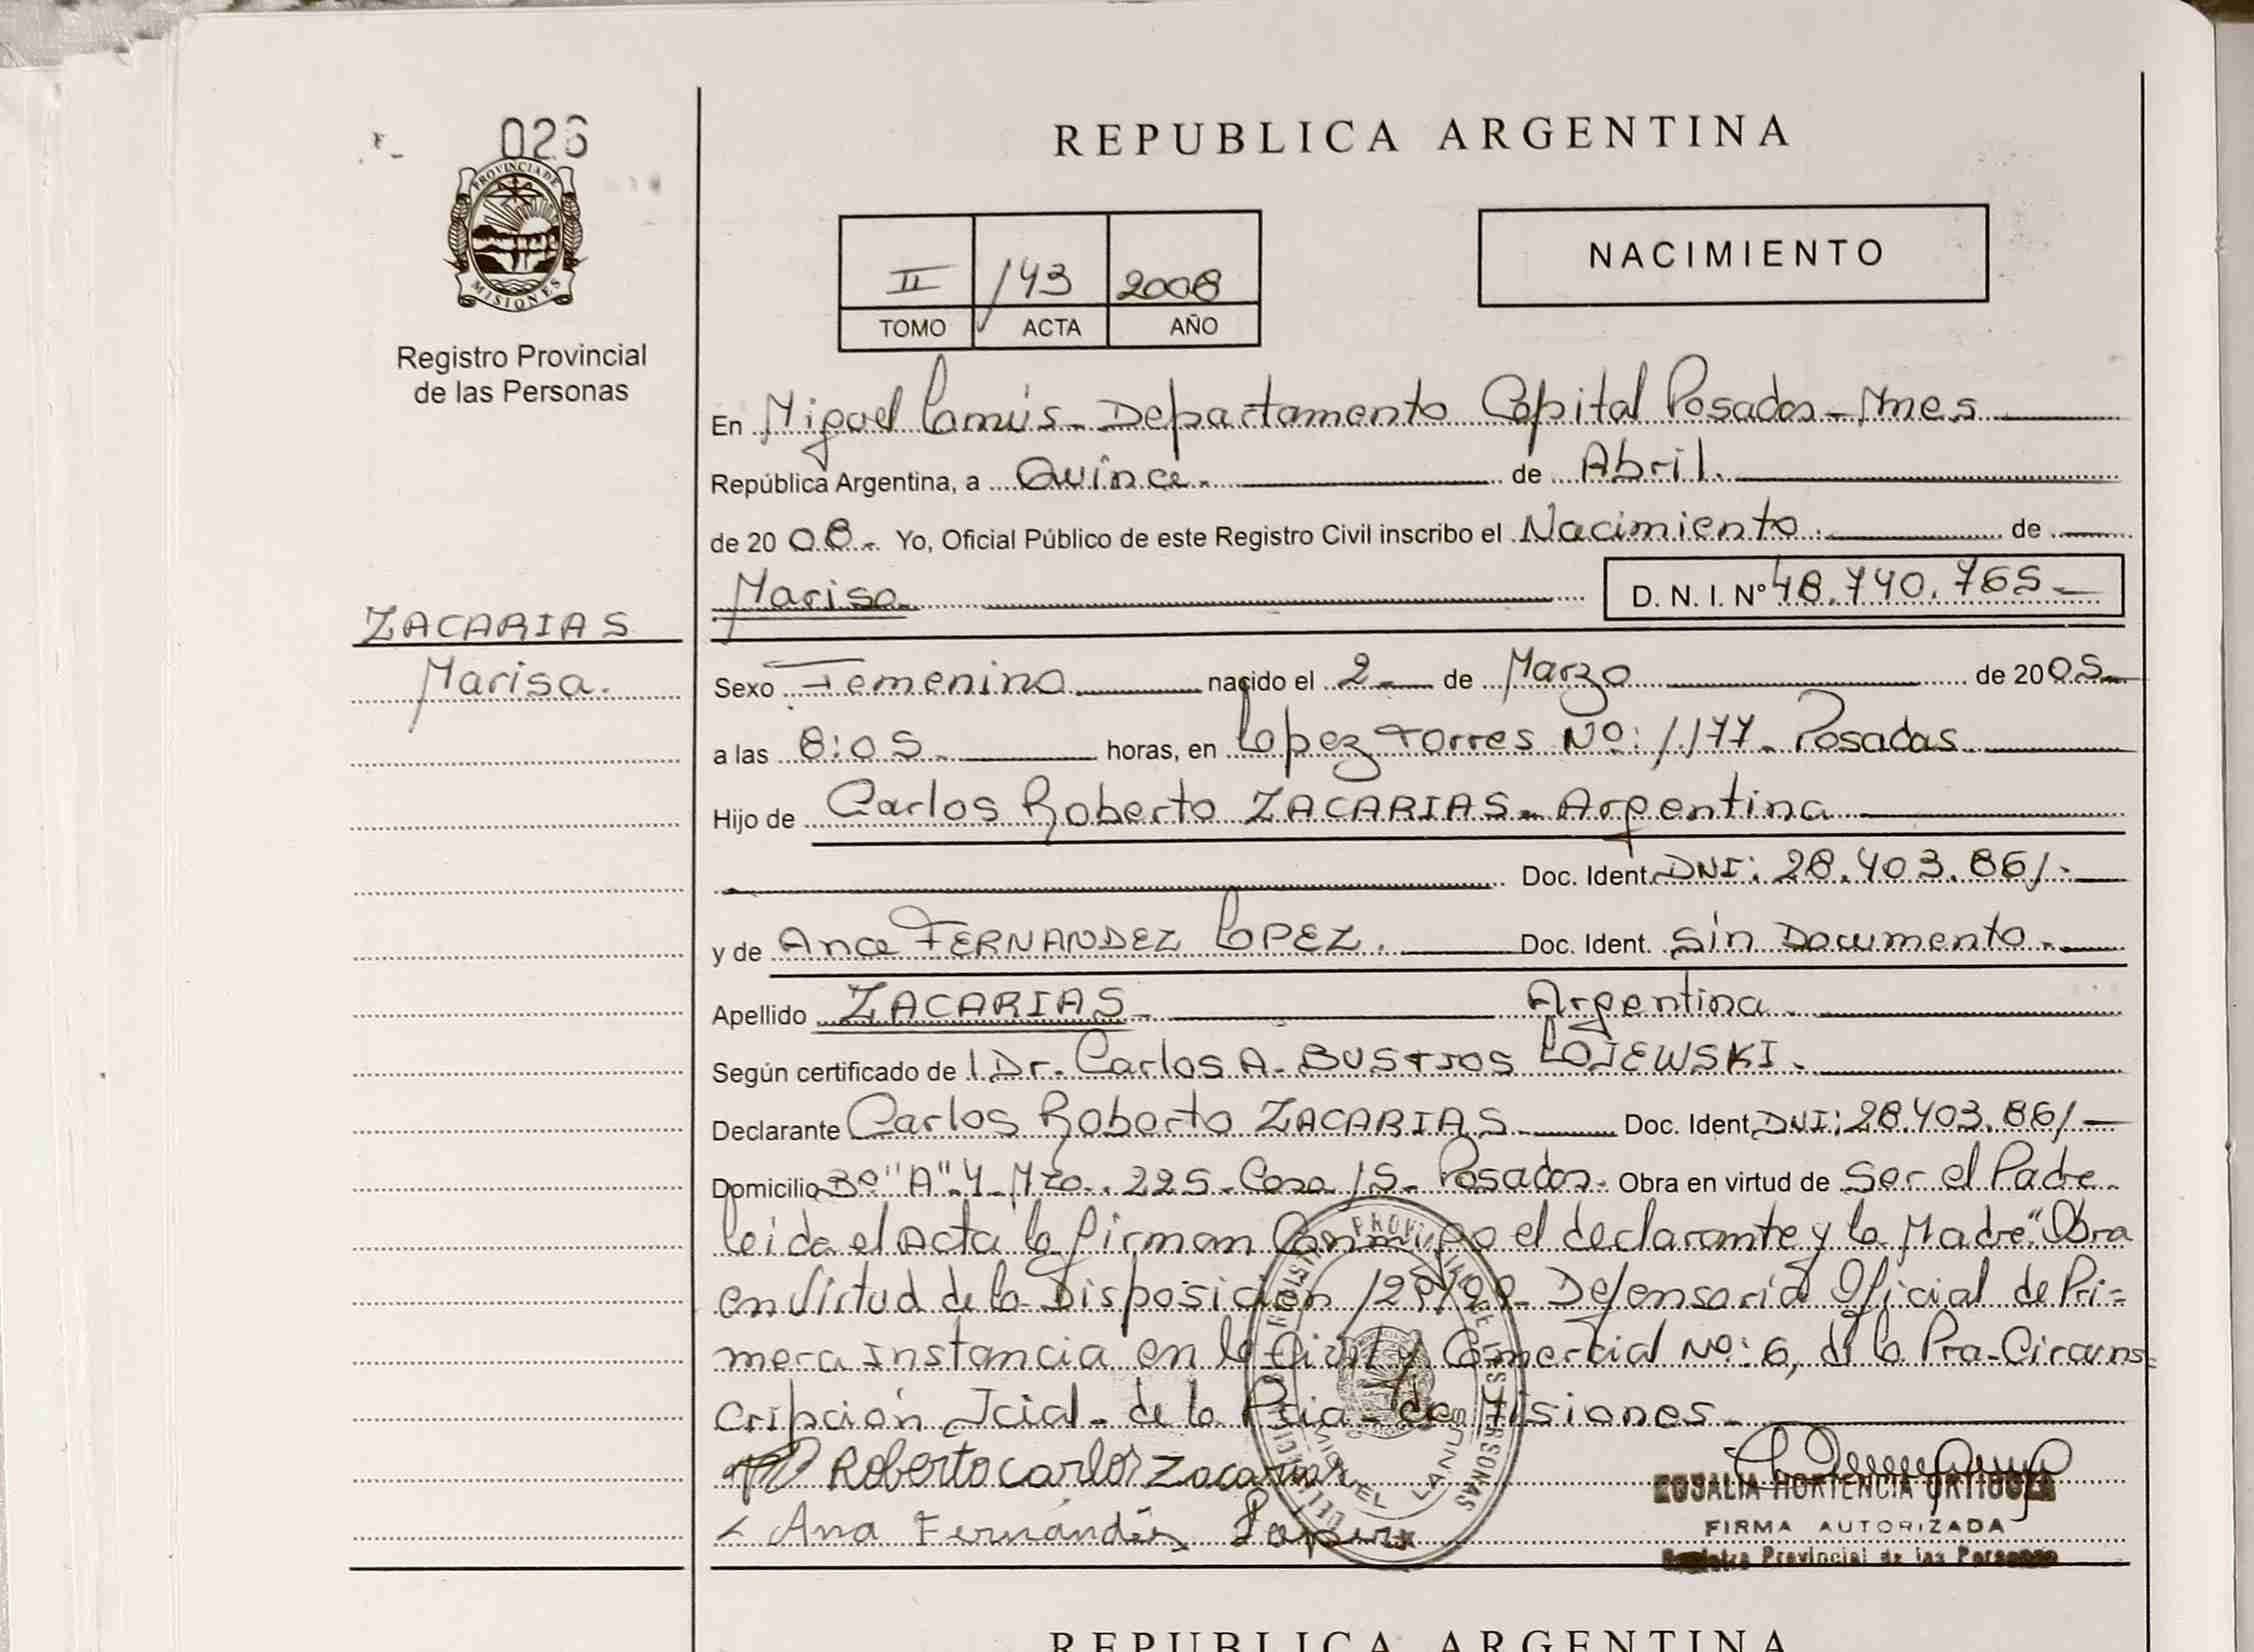 026
PROVINCIA DE
MISIONES
Registro Provincial
de las Personas
ZACARIAS
Marisa.
REPUBLICA ARGENTINA
II 143 2008
TOMO ACTA AÑO
NACIMIENTO
En Miguel Lanús - Departamento Capital Posadas - Mnes
República Argentina, a Quince. de Abril.
de 2008. Yo, Oficial Público de este Registro Civil inscribo el Nacimiento. de
Marisa D. N. I. Nº 48.740.765
Sexo Femenino nacido el 2 de Marzo de 2005
a las 8:05 horas, en Lopez Torres Nº: 1177 - Posadas
Hijo de Carlos Roberto ZACARIAS - Argentina
Doc. Ident. DNI: 28.403.861.
y de Ana FERNANDEZ LOPEZ. Doc. Ident. Sin Documento.
Apellido ZACARIAS - Argentina
Según certificado de Dr. Carlos A. LOJEWSKI.
Declarante Carlos Roberto ZACARIAS Doc. Ident. DNI: 28.403.861
Domicilio Bº "A" 4 - Mzo. 225 - Casa 15 - Posadas. Obra en virtud de ser el Padre
leida el acta la firman Conmigo el declarante y la Madre." Obra
en Virtud de la Disposición Defensoria Oficial de Pri-
mera Instancia en lo Civil y Comercial Nº: 6, de la Pra-Circuns-
cripción Jcial - de la Pcia - de Misiones -
Roberto carlos Zacarias
Ana Fernández
ROSALIA HORTENCIA ORTIGOZA
FIRMA AUTORIZADA
Registro Provincial de las Personas
MIGUEL LANUS
REPUBLICA ARGENTINA